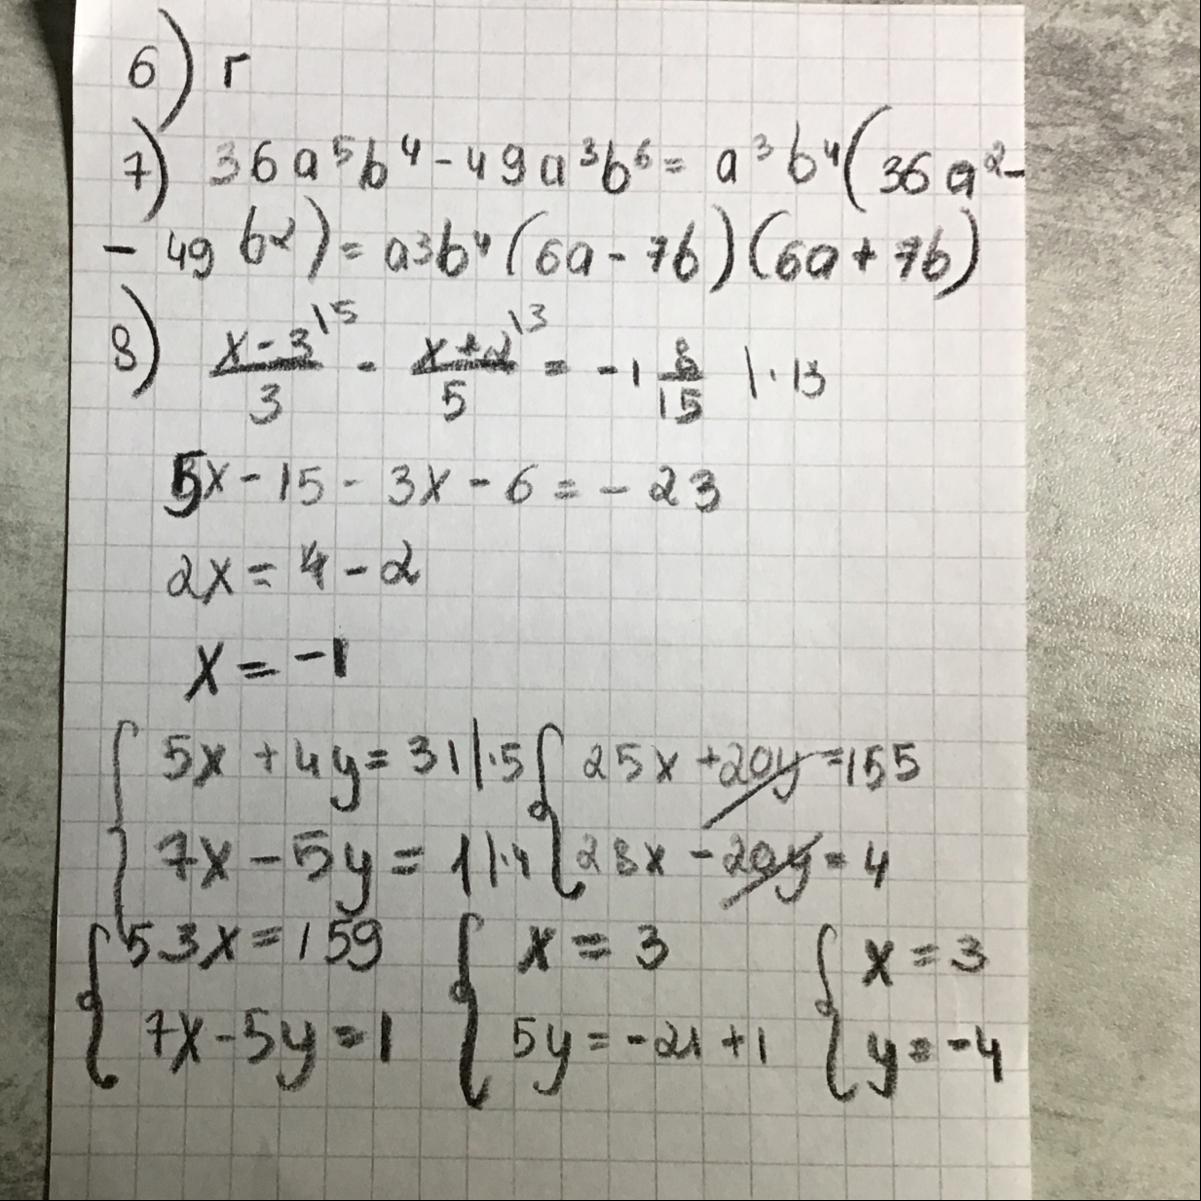 6) г
7) 36a⁵b⁴ - 49a³b⁶ = a³b⁴(36a² -
- 49b²) = a³b⁴(6a - 7b)(6a + 7b)
8) (x - 3)/3 \5 - (x + 2)/5 \3 = -1 8/15 |·13
5x - 15 - 3x - 6 = - 23
2x = 4 - 2
x = -1
{ 5x + 4y = 31 |·5 { 25x + 20y = 155
7x - 5y = 1 |·4 28x - 20y = 4
{ 53x = 159 { x = 3 { x = 3
7x - 5y = 1 5y = -21 + 1 y = -4